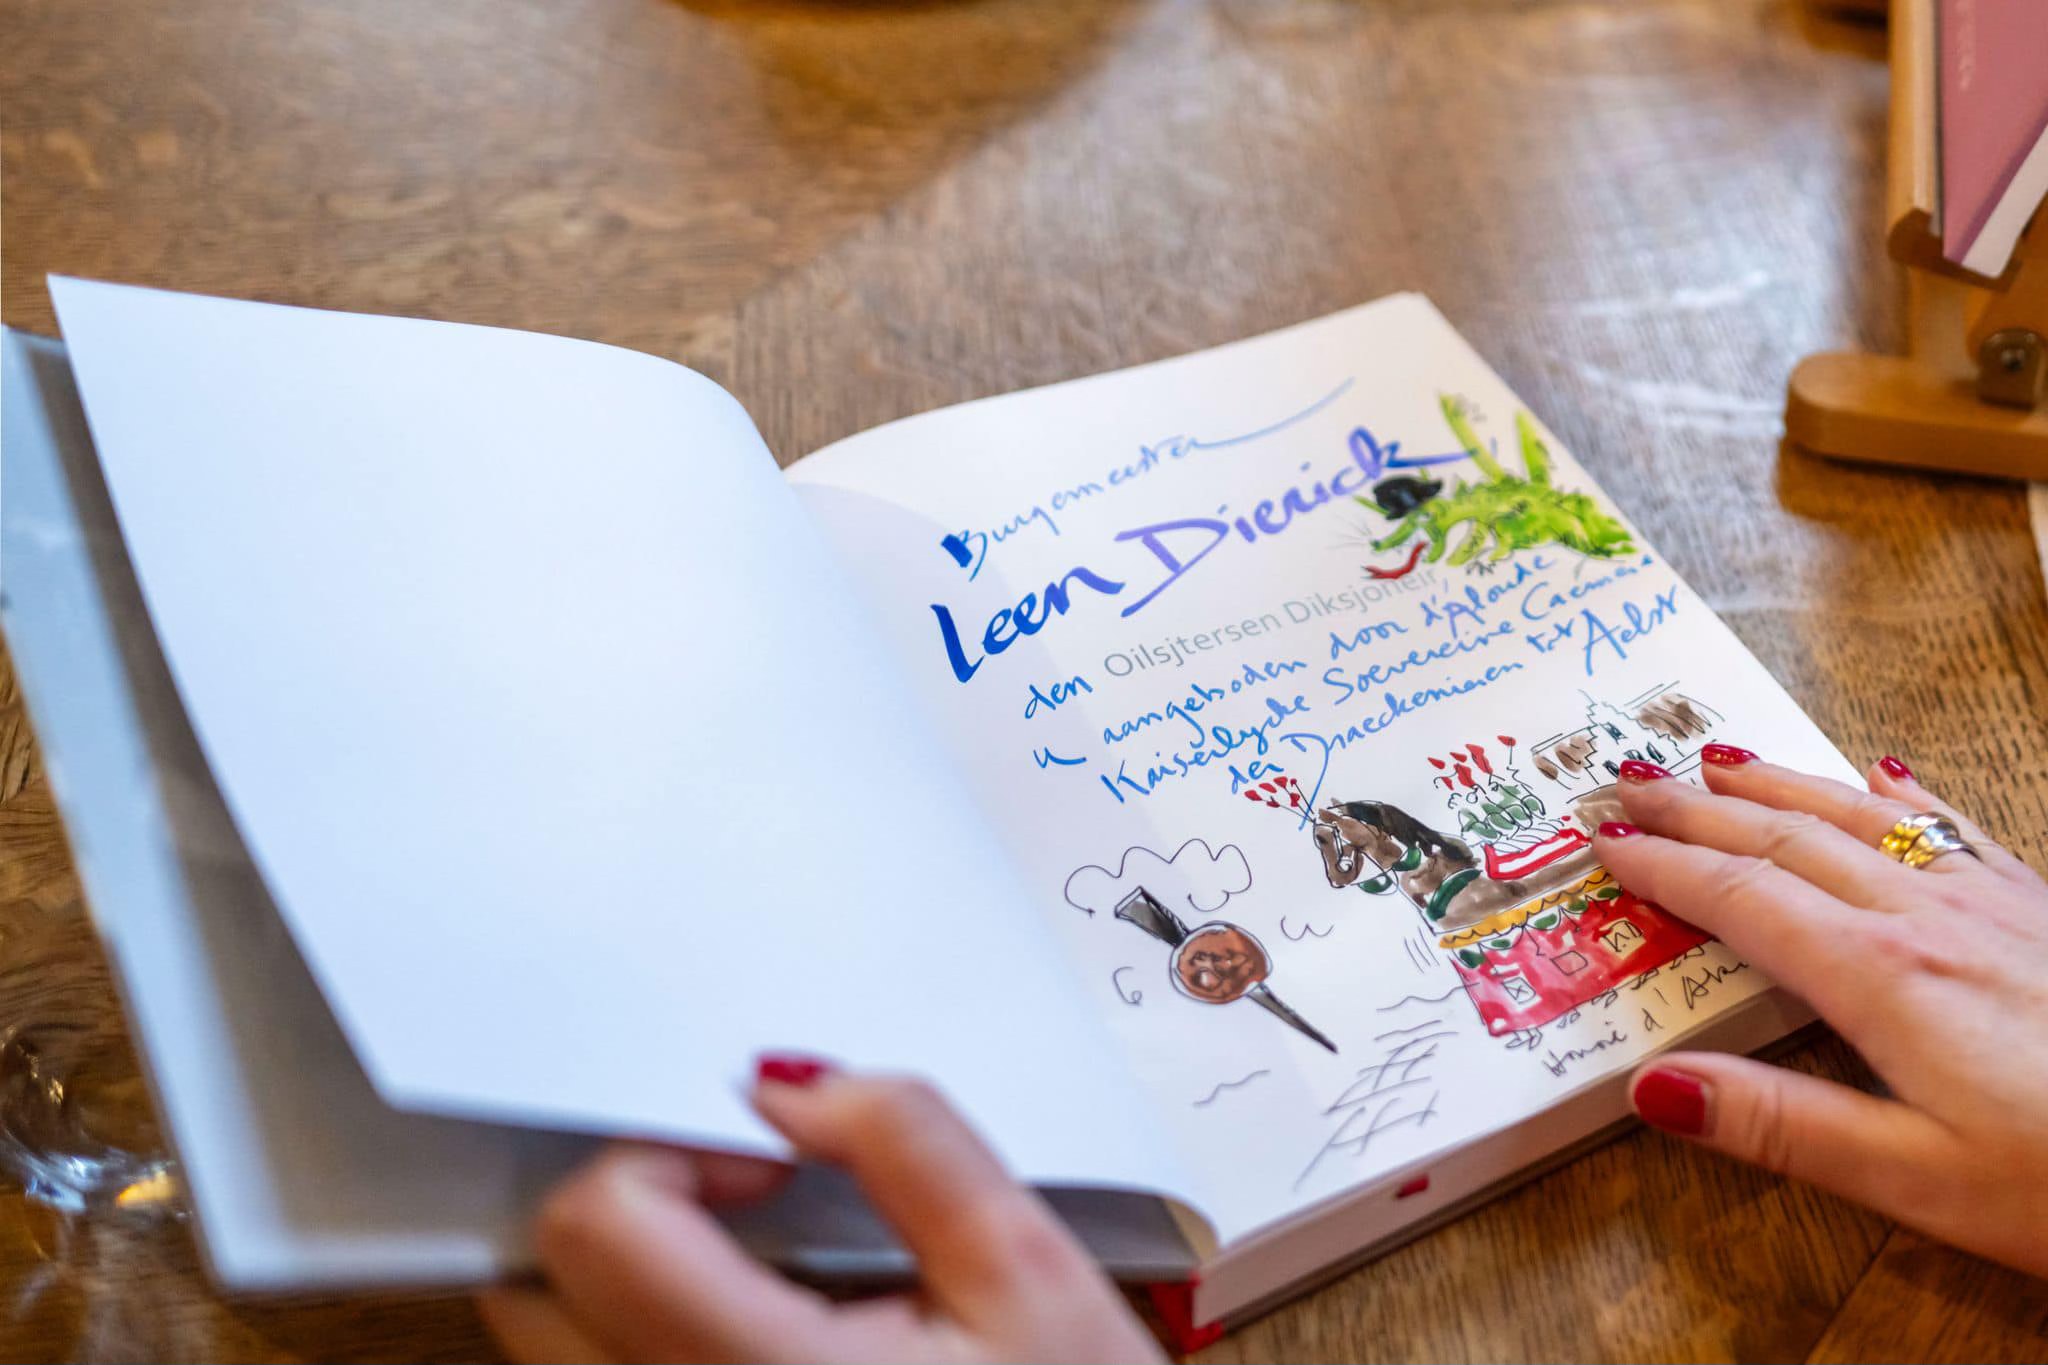 Burgemeester
Leen Dierick
den Oilsjtersen Diksjoneir
u aangeboden door d'Aloude
Kaiserlycke Soevereine Caemere
der Draeckenieren tot Aelst
Honoré d'